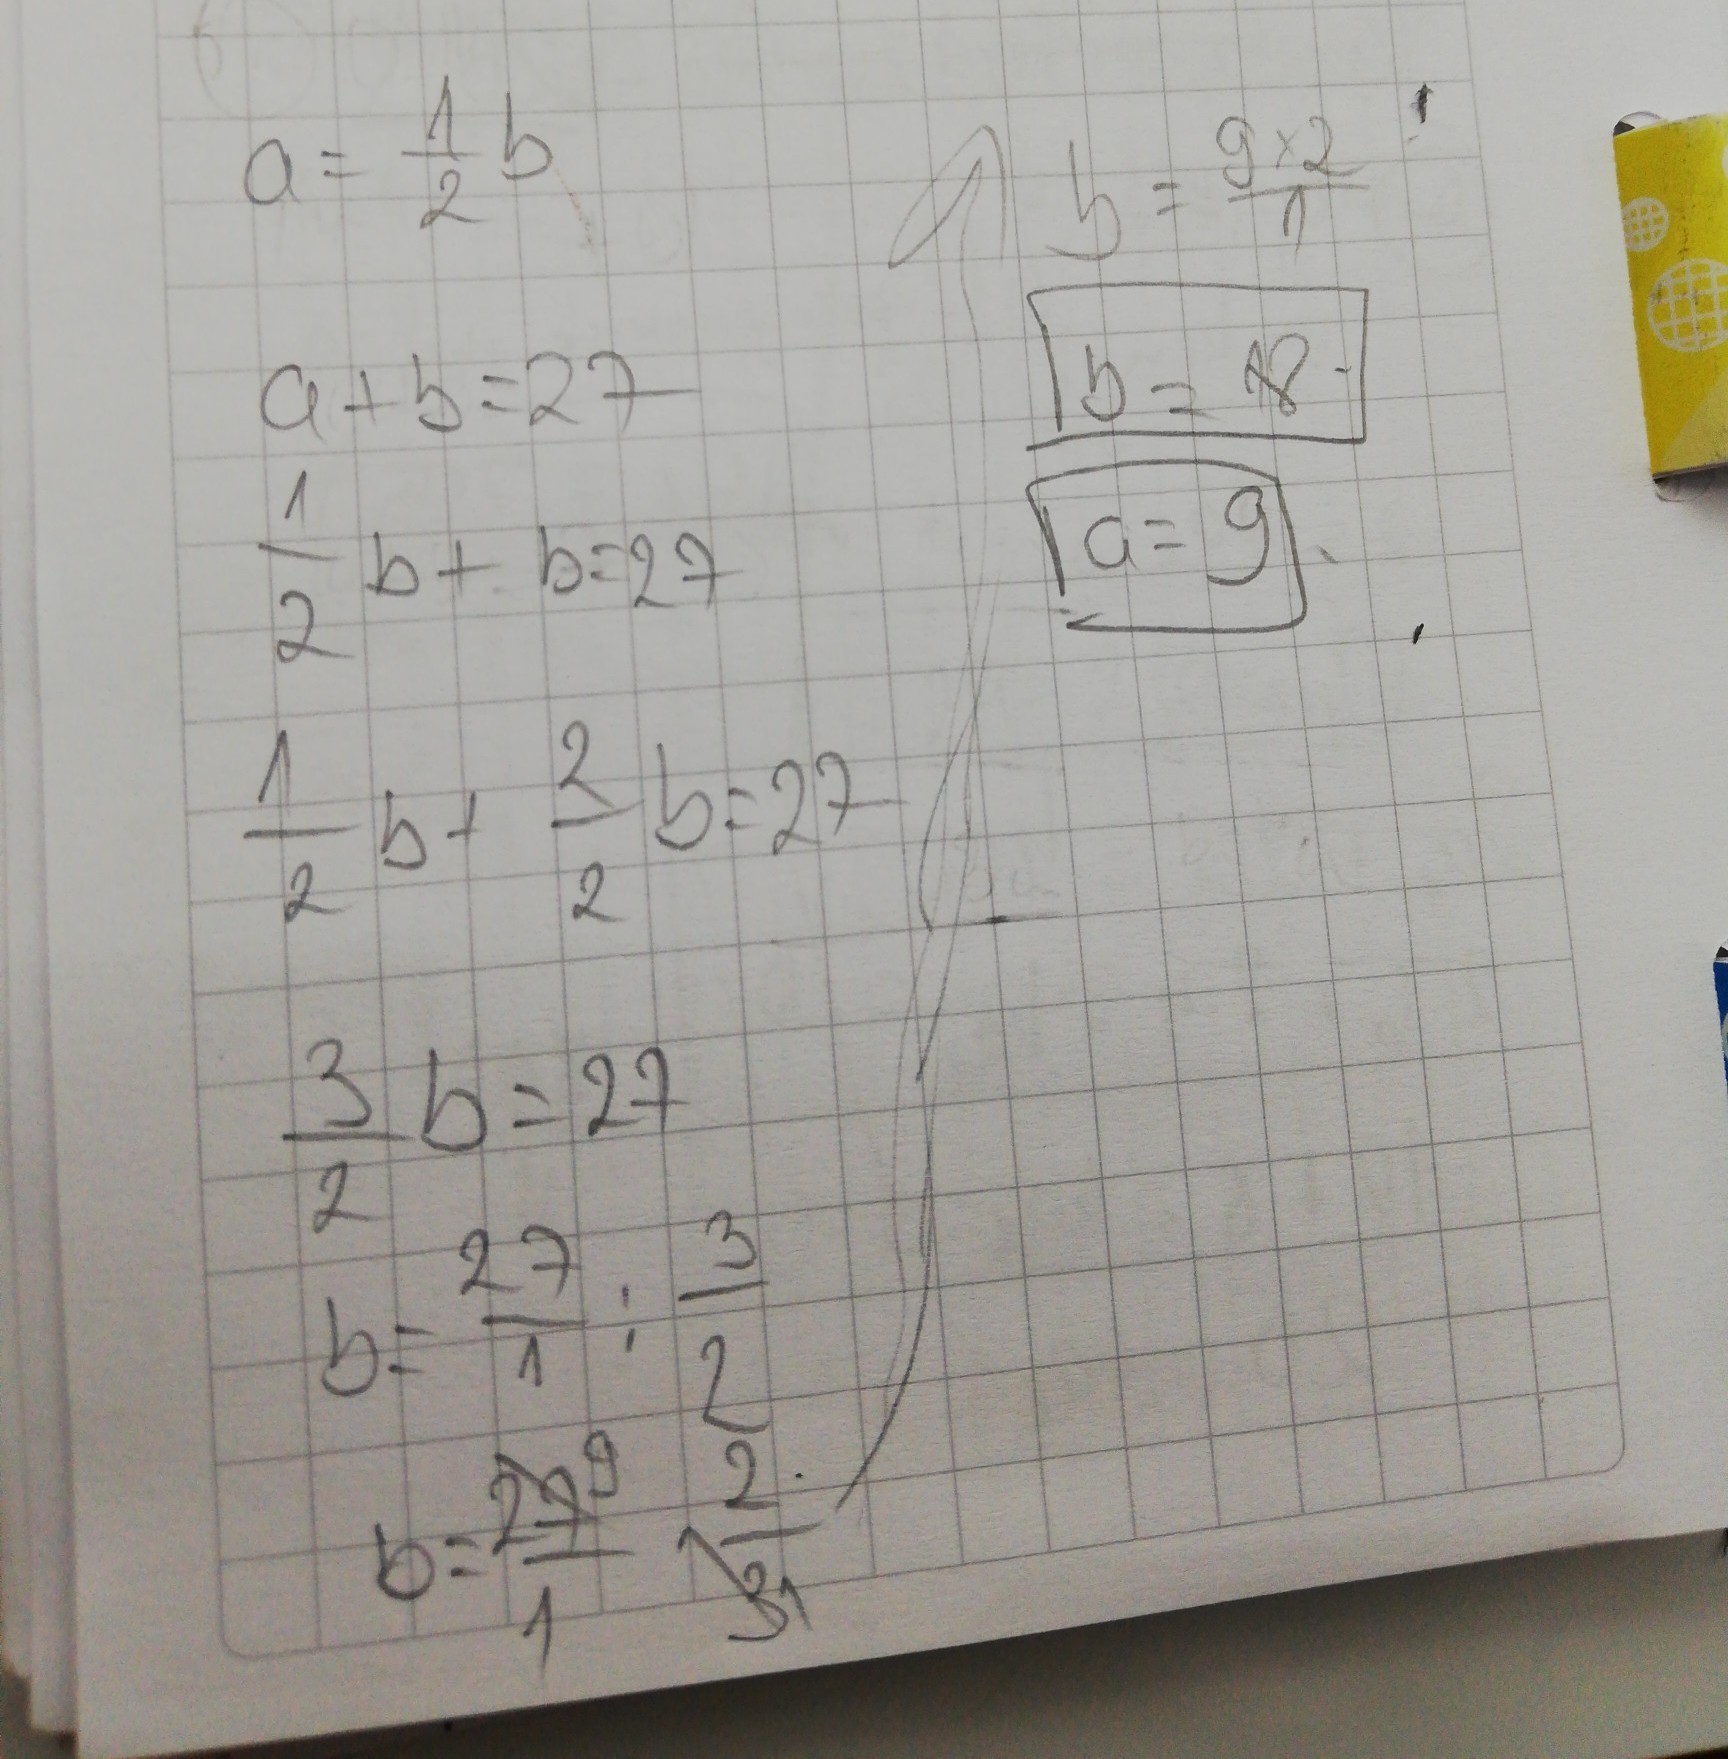 a = 1/2 b
a + b = 27
1/2 b + b = 27
1/2 b + 2/2 b = 27
3/2 b = 27
b = 27/1 : 3/2
b = 27 9/1 2/3 1
b = 9 × 2/1
b = 18
a = 9